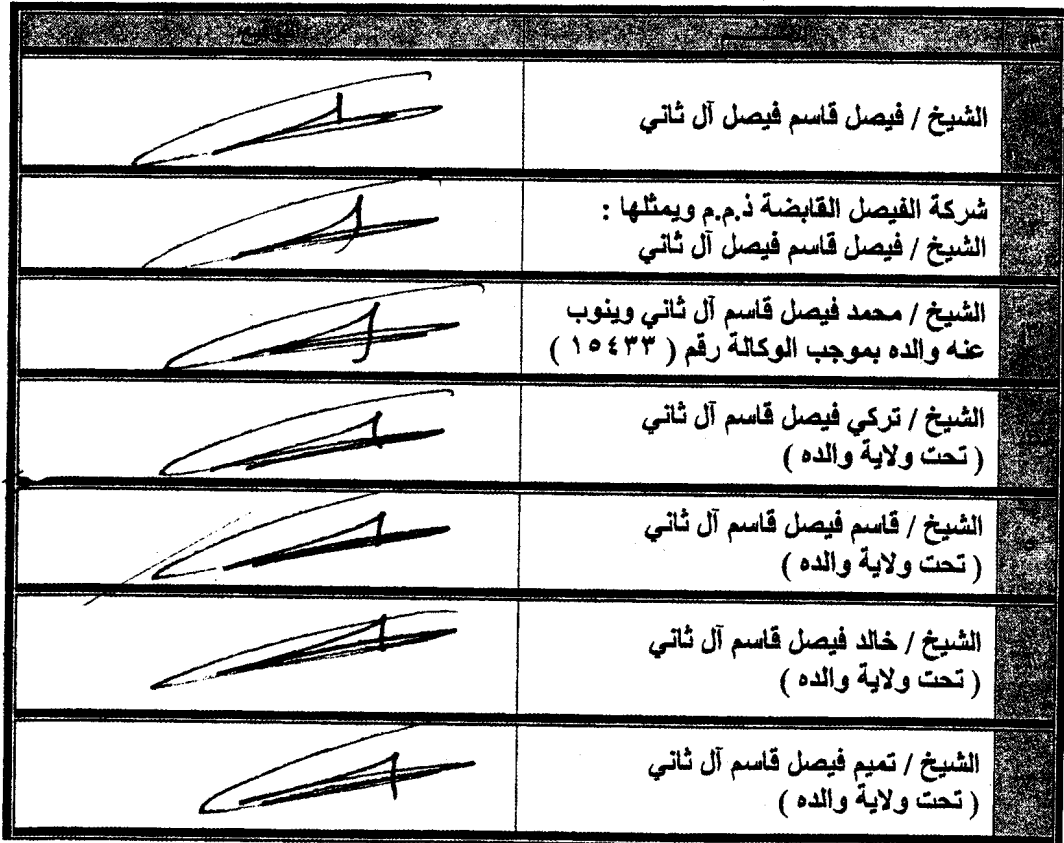 الشيخ / فيصل قاسم فيصل آل ثاني
شركة الفيصل القابضة ذ.م.م ويمثلها :
الشيخ / فيصل قاسم فيصل آل ثاني
الشيخ / محمد فيصل قاسم آل ثاني وينوب
عنه والده بموجب الوكالة رقم ( ١٥٤٣٣ )
الشيخ / تركي فيصل قاسم آل ثاني
( تحت ولاية والده )
الشيخ / قاسم فيصل قاسم آل ثاني
( تحت ولاية والده )
الشيخ / خالد فيصل قاسم آل ثاني
( تحت ولاية والده )
الشيخ / تميم فيصل قاسم آل ثاني
( تحت ولاية والده )